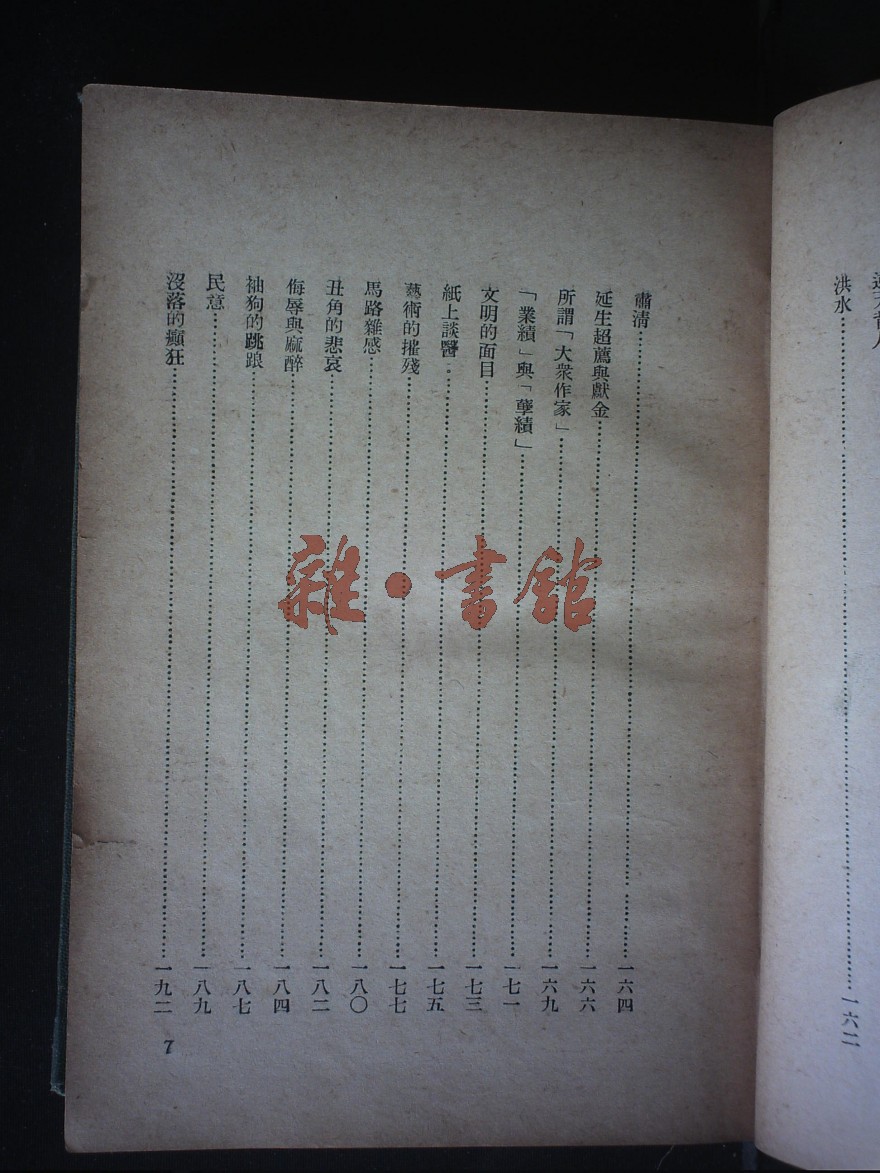 洪水……………………一六二
肅清……………………一六四
延生超薦與獻金……………………一六六
所謂「大衆作家」……………………一六九
「業績」與「孽績」……………………一七一
文明的面目……………………一七三
紙上談醫……………………一七五
藝術的摧殘……………………一七七
馬路雜感……………………一八〇
丑角的悲哀……………………一八二
侮辱與麻醉……………………一八四
袖狗的跳踉……………………一八七
民意……………………一八九
沒落的癲狂……………………一九二
7
雜·書館